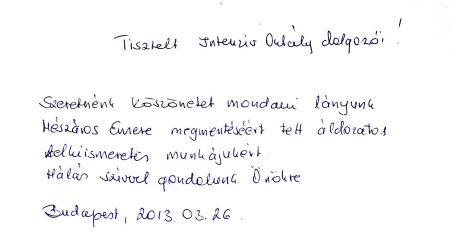 Tisztelt Intenzív Osztály dolgozói!
Szeretnénk köszönetet mondani lányunk
Mészáros Emere megmentéséért tett áldozatos
lelkiismeretes munkájukért.
Hálás szívvel gondolunk Önökre
Budapest, 2013.03.26.